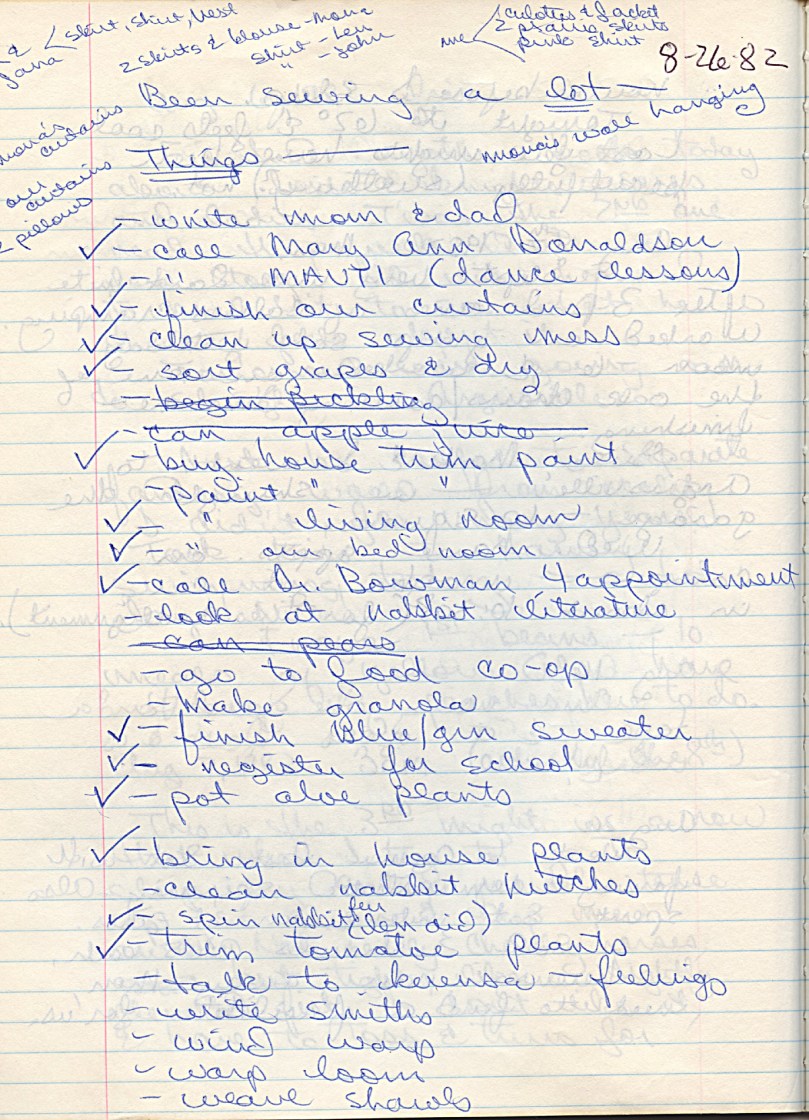 & Jana < skirt, shirt, vest
2 skirts & blouse - Mona
shirt - Len
" - John
me < culottes & jacket
2 prairie skirts
pink shirt
8-26-82
Been sewing a lot —
mona's curtains
our curtains
2 pillows
mona's wall hanging
Things —
- write mom & dad
✓ - call Mary Ann Donaldson
- " MAUTI (dance lessons)
✓ - finish our curtains
✓ - clean up sewing mess
✓ - sort grapes & dry
- begin pickling
- can apple juice
✓ - buy house trim paint
- paint " "
✓ - " living room
✓ - " our bed room
✓ - call Dr. Bowman 4 appointment
- look at rabbit literature
- can pears
- go to food co-op
- make granola
✓ - finish Blue/grn sweater
✓ - register for school
✓ - pot aloe plants
✓ - bring in house plants
- clean rabbit hutches
✓ - spin rabbit fur (len aid)
✓ - trim tomatoe plants
- talk to kerensa - feelings
- write Smiths
- wind warp
- warp loom
- weave shawls